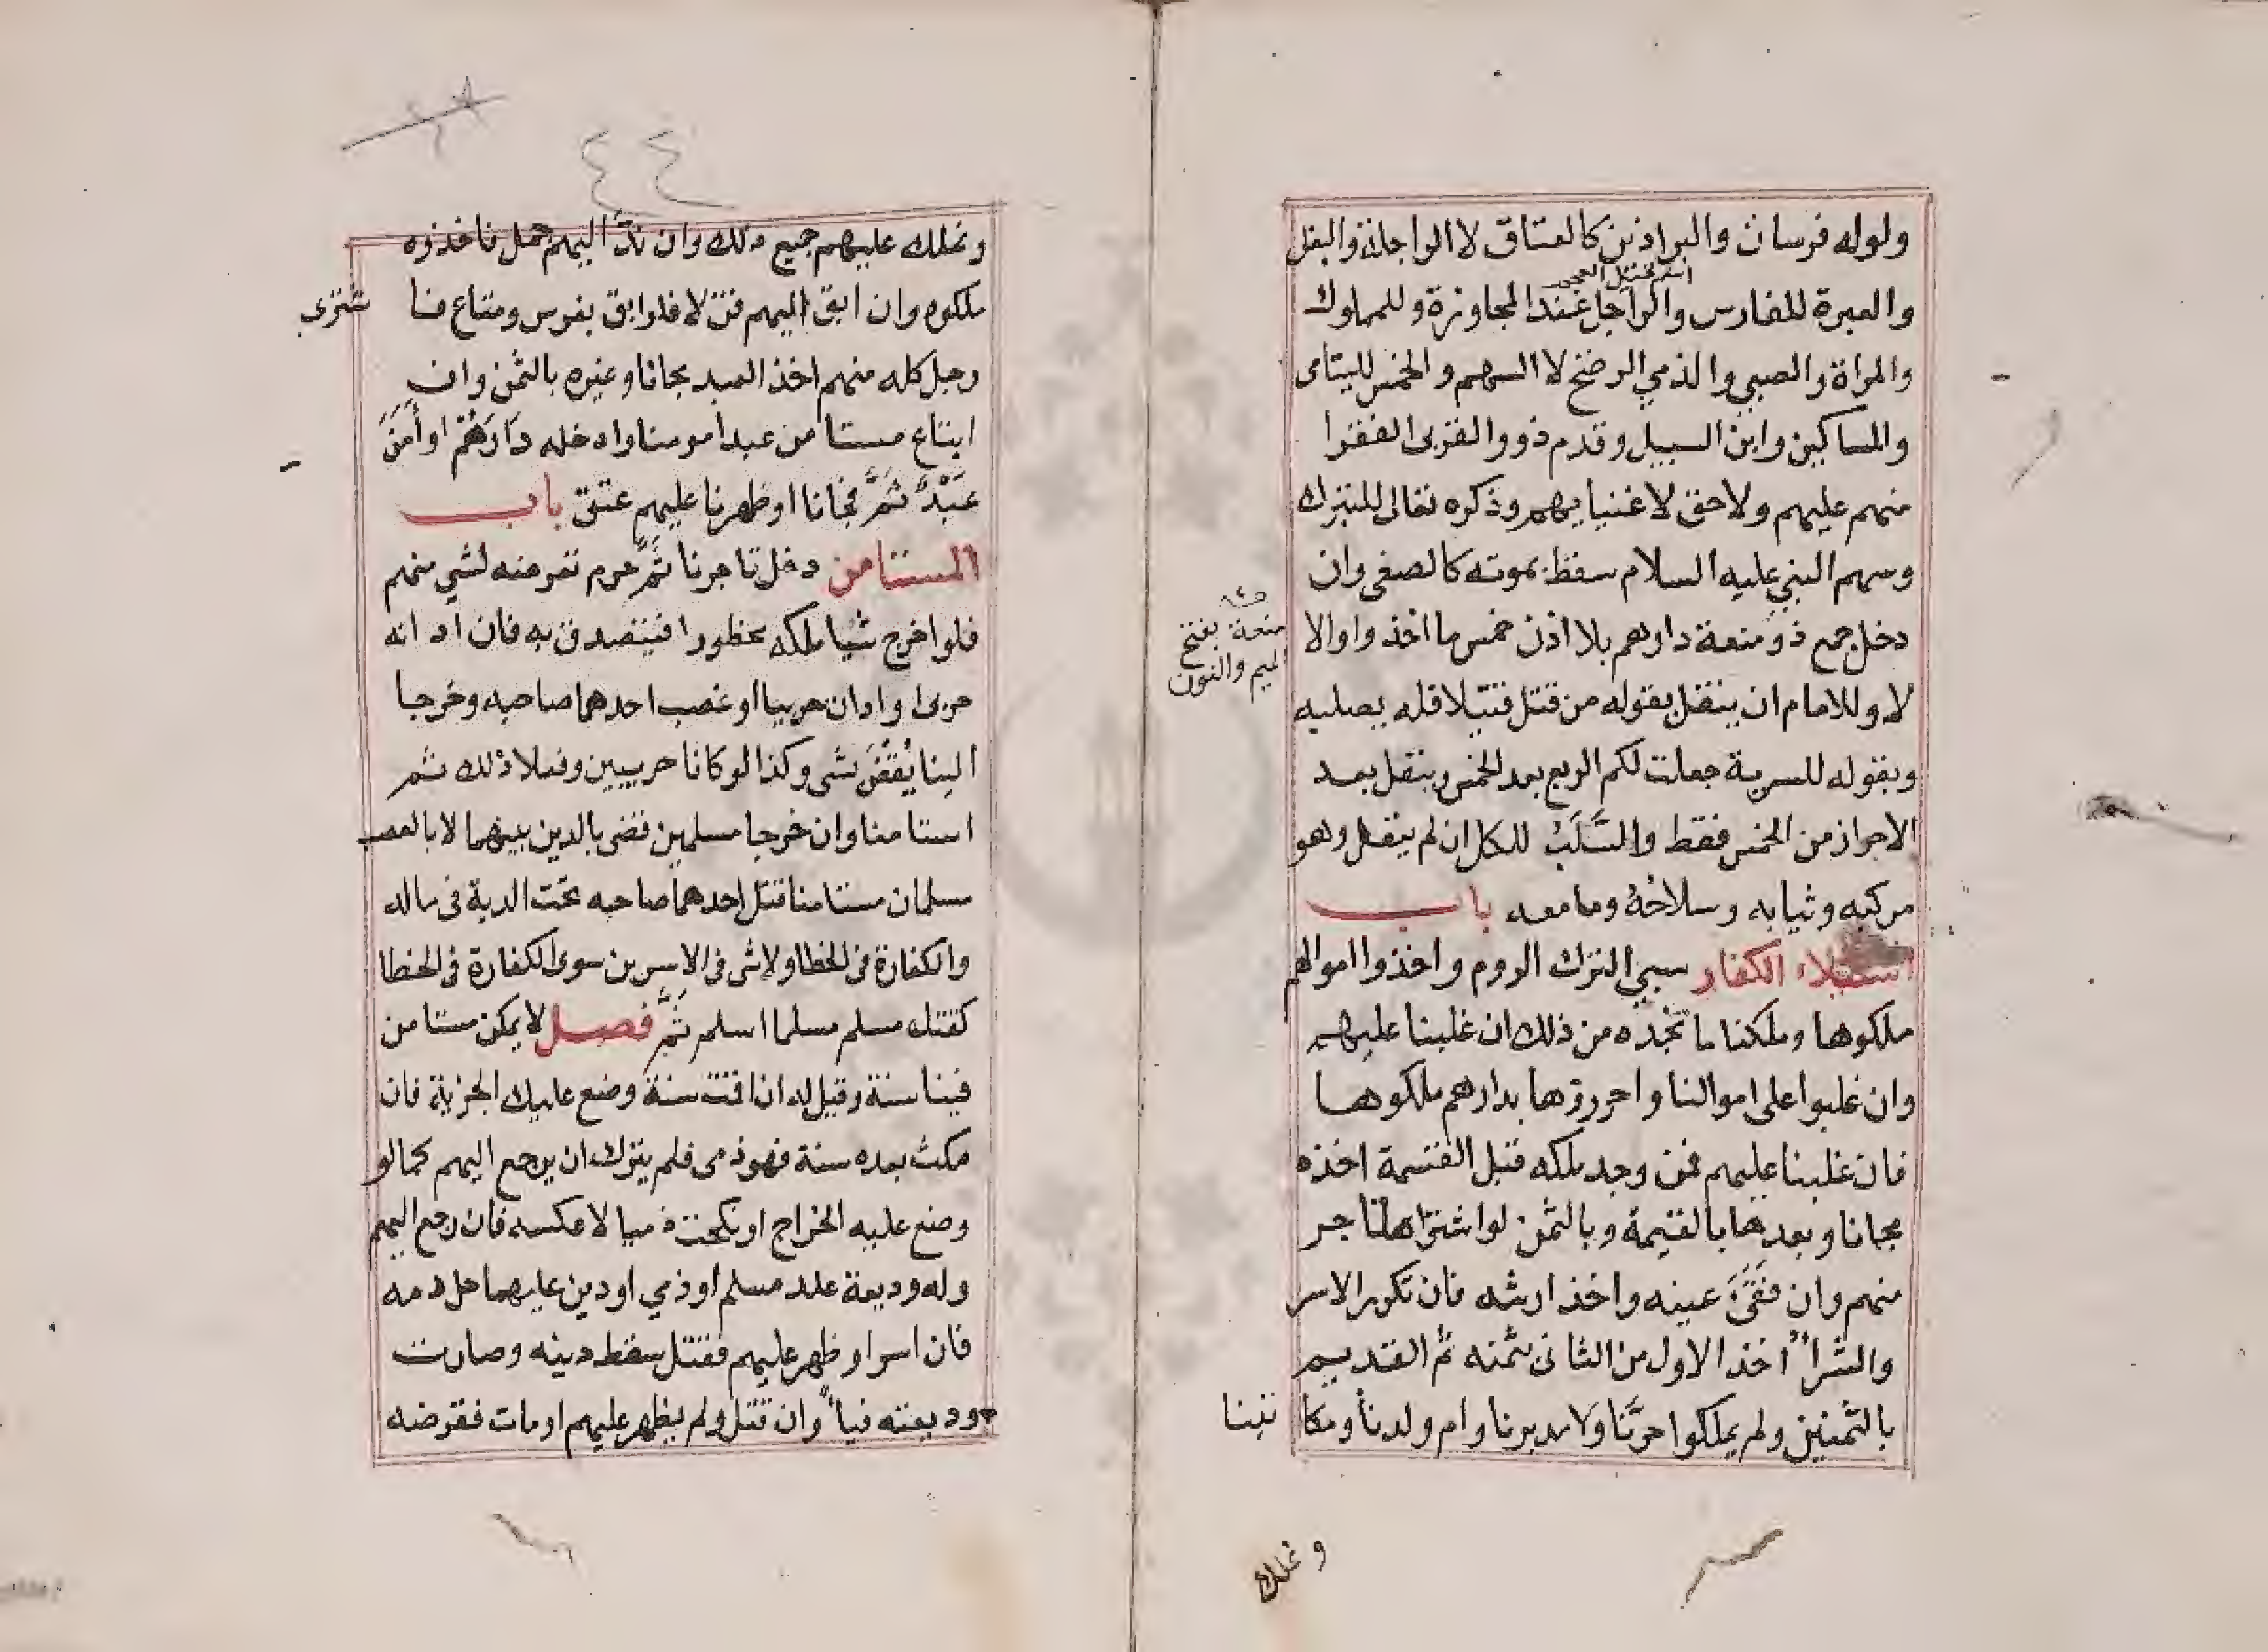 ولوله فرسان والبراذين كالعتاق لا الراحلة والبغل
والعبرة للفارس والراجل عند المجاوزة وللمملوك
والمراة والصبي والذمي الرضخ لا السهم والخمس لليتامى
والمساكين وابن السبيل وقدم ذووا القربى الفقرا
منهم عليهم ولاحق لاغنيايهم وذكره تعالى للتبرك
وسهم النبي عليه السلام سقط بموته كالصفى وان
دخل جمع ذو منعة دارهم بلا اذن خمس ما اخذ واوالا
منعة بفتح
الميم والنون
لا وللامام ان ينفل بقوله من قتل قتيلا فله بصلبه
وبقوله للسرية جعلت لكم الربع بعد الخمس وينفل بعد
الاحراز من الخمس فقط والسَّلَبُ للكل ان لم ينفل وهو
مركبه وثيابه وسلاحُهُ ومامعه باب
استيلاء الكفار سبي الترك الروم واخذوا اموالهم
ملكوها وملكنا ما نجده من ذلك ان غلبنا عليهم
وان غلبوا على اموالنا واحرزوها بدارهم ملكوها
فان غلبنا عليهم فمن وجد ملكه قبل القسمة اخذه
مجانا وبعدها بالقيمة وبالثمن لو اشتراها تاجر
منهم وان فَقَىَٔ عينه واخذ ارشه فان تكرر الاسر
والشرا اخذ الاول من الثانى بثمنه ثم القديم
بالثمنين ولم يملكوا حرَّنا ولا مدبرنا وام ولدنا ومكا تبنا
ونملك
٤٤
ونملك عليهم جميع ذلك وان ندَّ اليهم جمل فاخذوه
ملكوه وان ابق اليهم قن لا فلوابق بفرس ومتاع فا شترى
رجل كله منهم اخذ العبد مجانا وغيره بالثمن وان
ابتاع مستامن عبدا مومنا وادخله دَارَهُمْ اوأَمَنَ
عَبْدٌ ثَمَّ فجانا اوظهرنا عليهم عتق باب
المستامن دخل تاجرنا ثَمَّ حرم تعرضه لشي منهم
فلو اخرج شيا ملكه محظورا فيتصدق به فان ادانه
حربى او ادان حربيا او غصب احدهما صاحبه وخرجا
الينا يُقْضَ بشى وكذا لو كانا حربيين وفعلا ذلك ثم
استامنا وان خرجا مسلمين قضى بالدين بينهما لا بالغصب
مسلمان مستامنا قتل احدهما صاحبه تحت الدية فى ماله
والكفارة فى الخطا ولاشى فى الاسيرين سوى الكفارة فى الخطا
كقتل مسلم مسلما اسلم ثَمَّ فصل لا يمكن مستامن
فينا سنة وقيل له ان اقمت سنة وضع عليك الجزية فان
مكث بعده سنة فهو ذمى فلم يترك ان يرجع اليهم كما لو
وضع عليه الخراج او نكحت ذميا لا عكسه فان رجع اليهم
وله وديعة عند مسلم او ذمي او دين عليهما حل دمه
فان اسر او ظهر عليهم فقتل سقط دينه وصارت
وديعته فيا وان قتل ولم يظهر عليهم اومات فقرضه